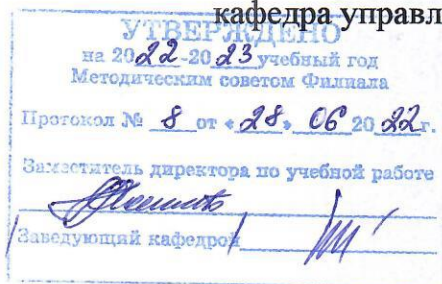 кафедра управл
УТВЕРЖДЕНО
на 2022-2023 учебный год
Методическим советом Филиала
Протокол № 8 от «28» 06 2022г.
Заместитель директора по учебной работе
Заведующий кафедрой